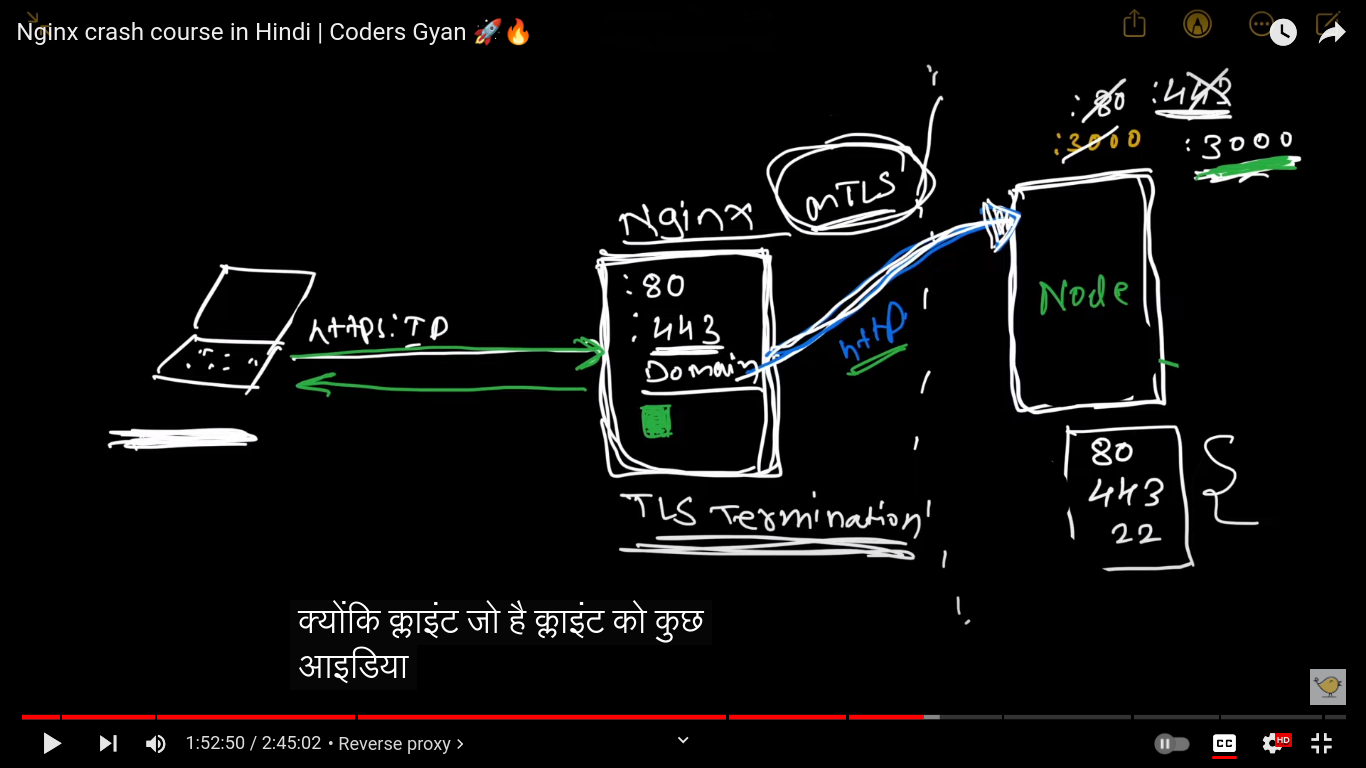 Nginx crash course in Hindi | Coders Gyan 🚀🔥
:80 :443
:3000 :3000
mTLS
Nginx
:80
:443
Domain
https: IP
http
Node
80
443
22
TLS Termination
क्योंकि क्लाइंट जो है क्लाइंट को कुछ
आइडिया
1:52:50 / 2:45:02 • Reverse proxy >
CC
HD